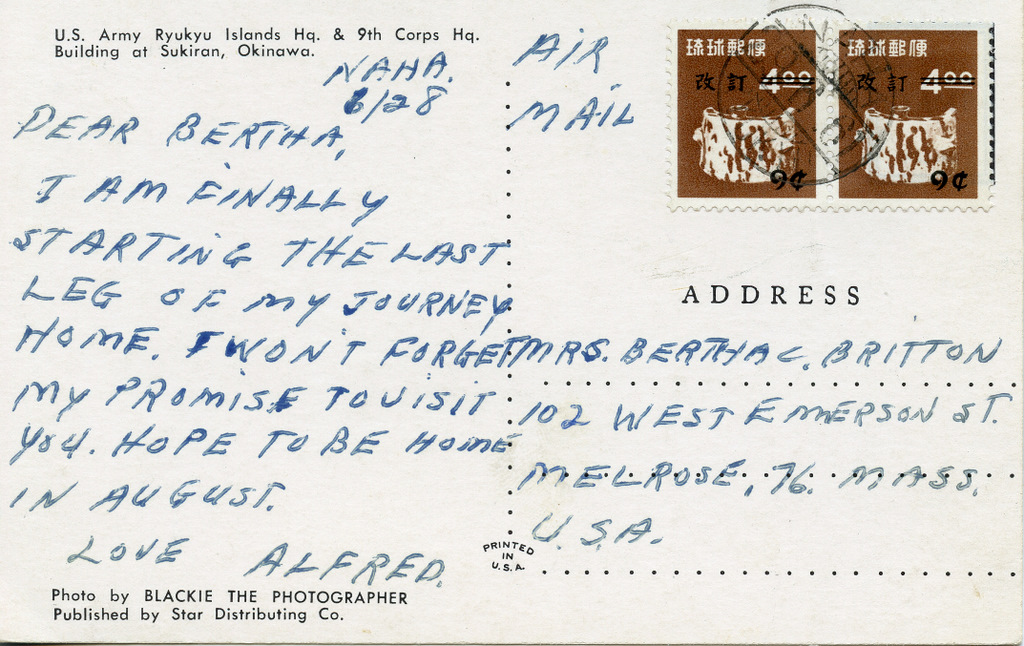 U.S. Army Ryukyu Islands Hq. & 9th Corps Hq.
Building at Sukiran, Okinawa.
NAHA.
6/28
DEAR BERTHA,
I AM FINALLY
STARTING THE LAST
LEG OF MY JOURNEY
HOME. I WON'T FORGET
MY PROMISE TO VISIT
YOU. HOPE TO BE HOME
IN AUGUST.
LOVE ALFRED.
Photo by BLACKIE THE PHOTOGRAPHER
Published by Star Distributing Co.
PRINTED
IN
U.S.A.
AIR
MAIL
琉球郵便
改訂 4.00
9¢
琉球郵便
改訂 4.00
9¢
ADDRESS
MRS. BERTHA C. BRITTON
102 WEST EMERSON ST.
MELROSE, 76. MASS.
U.S.A.